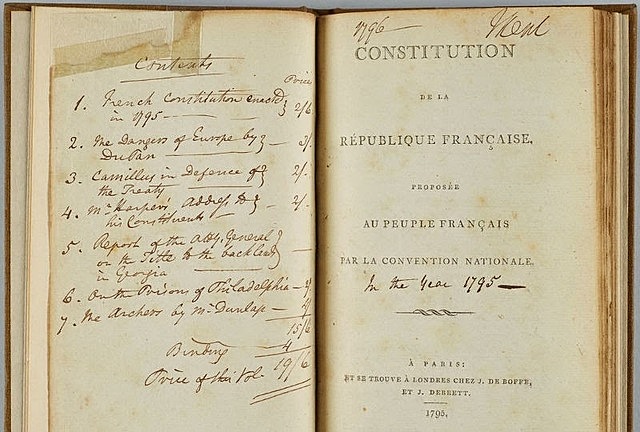 Contents
Price
1. French Constitution enacted
in 1795 — 2/6
2. The Dangers of Europe by
Du Pan — 3/
3. Camillus in Defence of
the Treaty — 2/.
4. Mr Harper's Address to
his Constituents — 2/.
5. Report of the Atty. General
on the Title to the back land
in Georgia
6. On the Prisons of Philadelphia —
7. The Archers by Mr Dunlap —
15/6
Binding 4
Price of this Vol. 19/6
1796
CONSTITUTION
DE LA
RÉPUBLIQUE FRANÇAISE,
PROPOSÉE
AU PEUPLE FRANÇAIS
PAR LA CONVENTION NATIONALE.
In the Year 1795 —
À PARIS:
ET SE TROUVE À LONDRES CHEZ J. DE BOFFE,
ET J. DEBRETT.
1795.